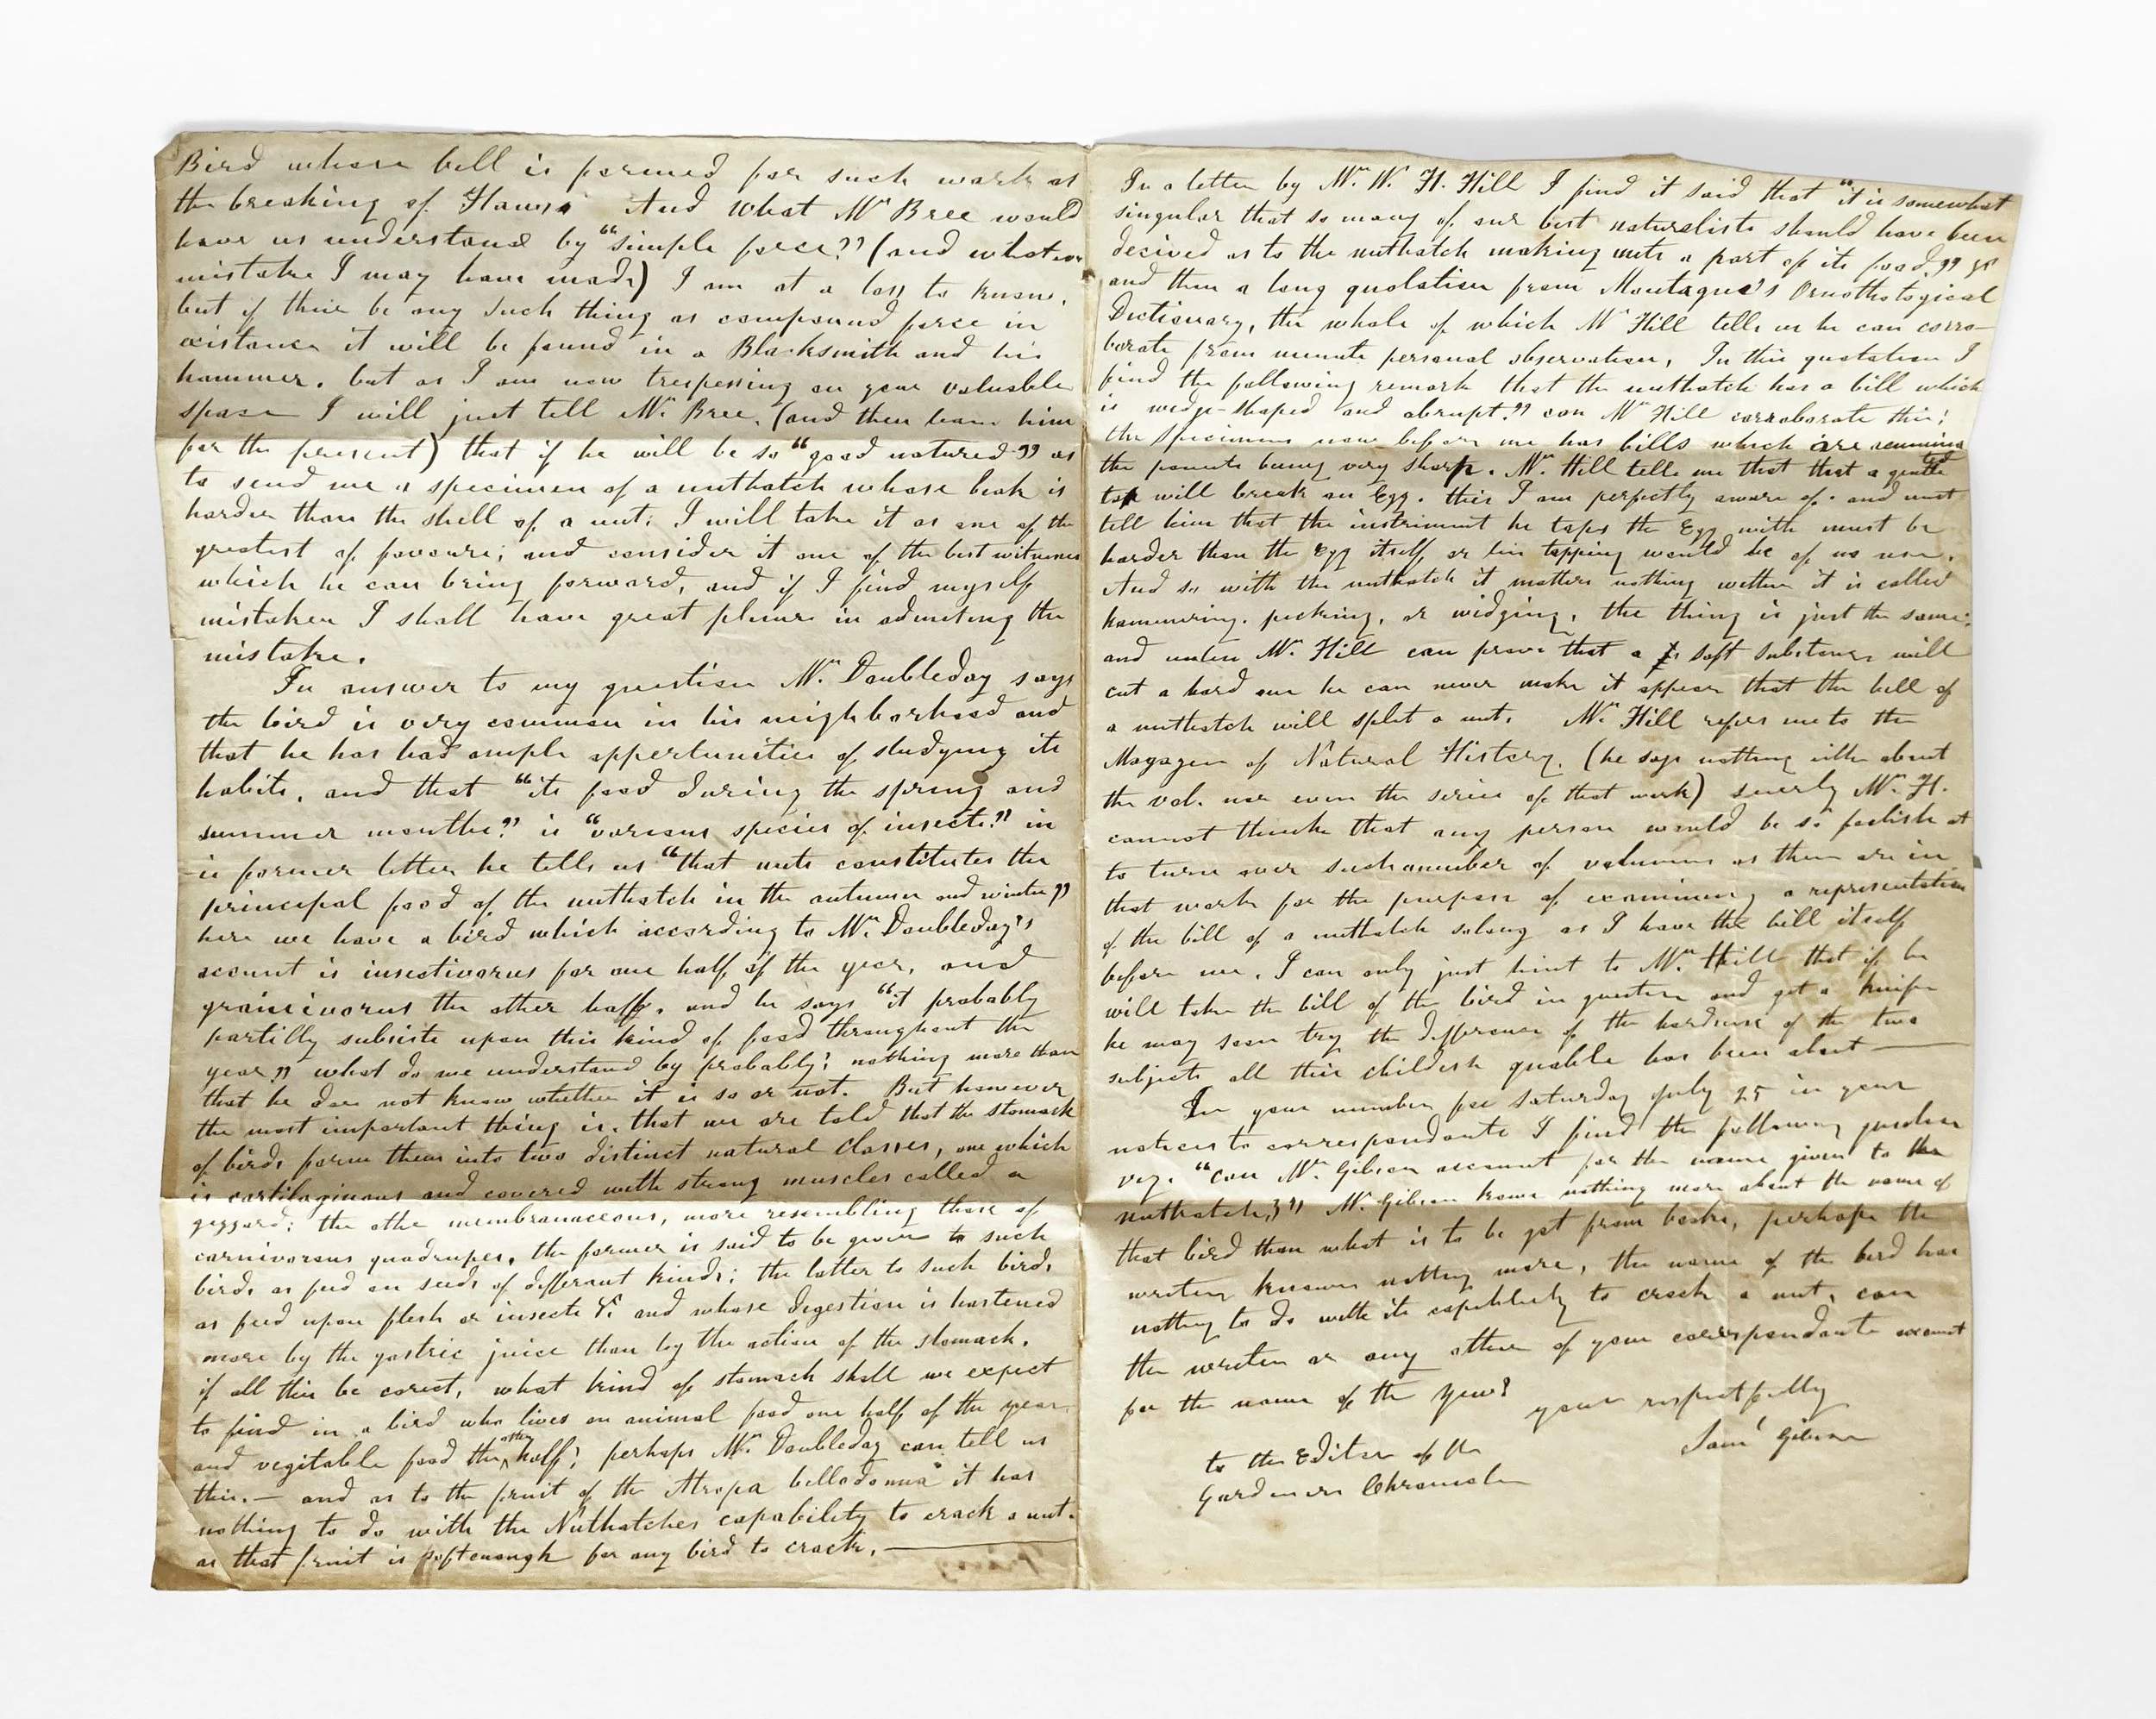 Bird whose bill is formed for such work as
the breaking of Haws. And what Mr Bree would
have us understand by "simple force?" (and whatever
mistake I may have made) I am at a loss to know.
but if their be any such thing as compound force in
existance it will be found in a Blacksmith and his
hammer. but as I am now trespessing on your valuable
space I will just tell Mr. Bree. (and then leave him
for the present) that if he will be so "good natured" as
to send me a specimen of a nuthatch whose beak is
harder than the shell of a nut; I will take it as one of the
greatest of favours; and consider it one of the best witnesses
which he can bring forward, and if I find myself
mistaken I shall have great plesure in admiting the
mistake.
In answer to my question Mr. Doubleday says
the bird is very common in his neighborhood and
that he has had ample oppertunities of studying its
habits, and that "its food during the spring and
summer months" is "various species of insects" in
is former letter he tells us "that nuts constitutes the
principal food of the nuthatch in the autumn and winter"
here we have a bird which according to Mr. Doubleday's
account is insectivorus for one half of the year, and
granivorus the other half. and he says "it probably
partilly subsists upon this kind of food throughout the
year" what do we understand by probably? nothing more than
that he does not know whether it is so or not. But however
the most important thing is. that we are told that the stomack
of birds forms them into two distinct natural classes, one which
is cartilaginous and covered with strong muscles called a
gezzard; the othe membranaceous, more resembling those of
carnivorous quadrupes, the former is said to be given to such
birds as feed on seeds of differant kinds; the latter to such birds
as feed upon flesh or insects &c and whose digestion is hastened
more by the gastric juice than by the action of the stomack.
if all this be corect, what kind of stomack shall we expect
to find in a bird who lives on animal food one half of the year
and vegitable food the other half; perhaps Mr. Doubleday can tell us
this. — and as to the fruit of the Atropa belladonna it has
nothing to do with the Nuthatches capability to crack a nut.
as that fruit is soft enough for any bird to crack. —
In a letter by Mr. W. H. Hill I find it said that "it is somewhat
singular that so many of our best naturalists should have been
decived as to the nuthatch making nuts a part of its food," &c
and then a long quotation from Montague's Ornothological
Dictionary, the whole of which Mr Hill tells us he can corro-
borate from minute personal observation, In this quotation I
find the following remark that the nuthatch has a bill which
is wedge-shaped and abrupt." can Mr Hill corraborate this;
the specimens now before me has bills which are acuminated
the points being very sharp. Mr. Hill tells me that that a gentle
tap will break an Egg. this I am perfectly aware of. and must
tell him that the instriment he taps the Egg with must be
harder than the Egg itself or his tapping would be of no use.
And so with the nuthatch it matters nothing wether it is called
hammering. pecking, or widging, the thing is just the same;
and unless Mr. Hill can prove that a soft substance will
cut a hard one he can never make it appear that the bill of
a nuthatch will split a nut. Mr. Hill refers me to the
Magazen of Natural History. (he says nothing eithe about
the vol. nor even the series of that work) suerly Mr. H.
cannot thinke that any person would be so foolish as
to turn over such a number of volumns as there are in
that work for the purpose of examining a representation
of the bill of a nuthatch solong as I have the bill itself
before me. I can only just hint to Mr. Hill that if he
will take the bill of the bird in question and get a knife
he may soon try the differance of the hardness of the two
subjects all this childish quable has been about —
In your number for Saturday July 25 in your
notices to correspondants I find the following question
viz. "can Mr. Gibson account for the name given to the
nuthatch?" Mr. Gibson knows nothing more about the name of
that bird than what is to be got from books, perhaps the
writer knows nothing more, the name of the bird has
nothing to do with its capability to crack a nut, can
the writer or any other of your correspondants account
for the name of the Yew?
yours respectfully
Saml Gibson
to the Editor of the
Gardeners Chronicle